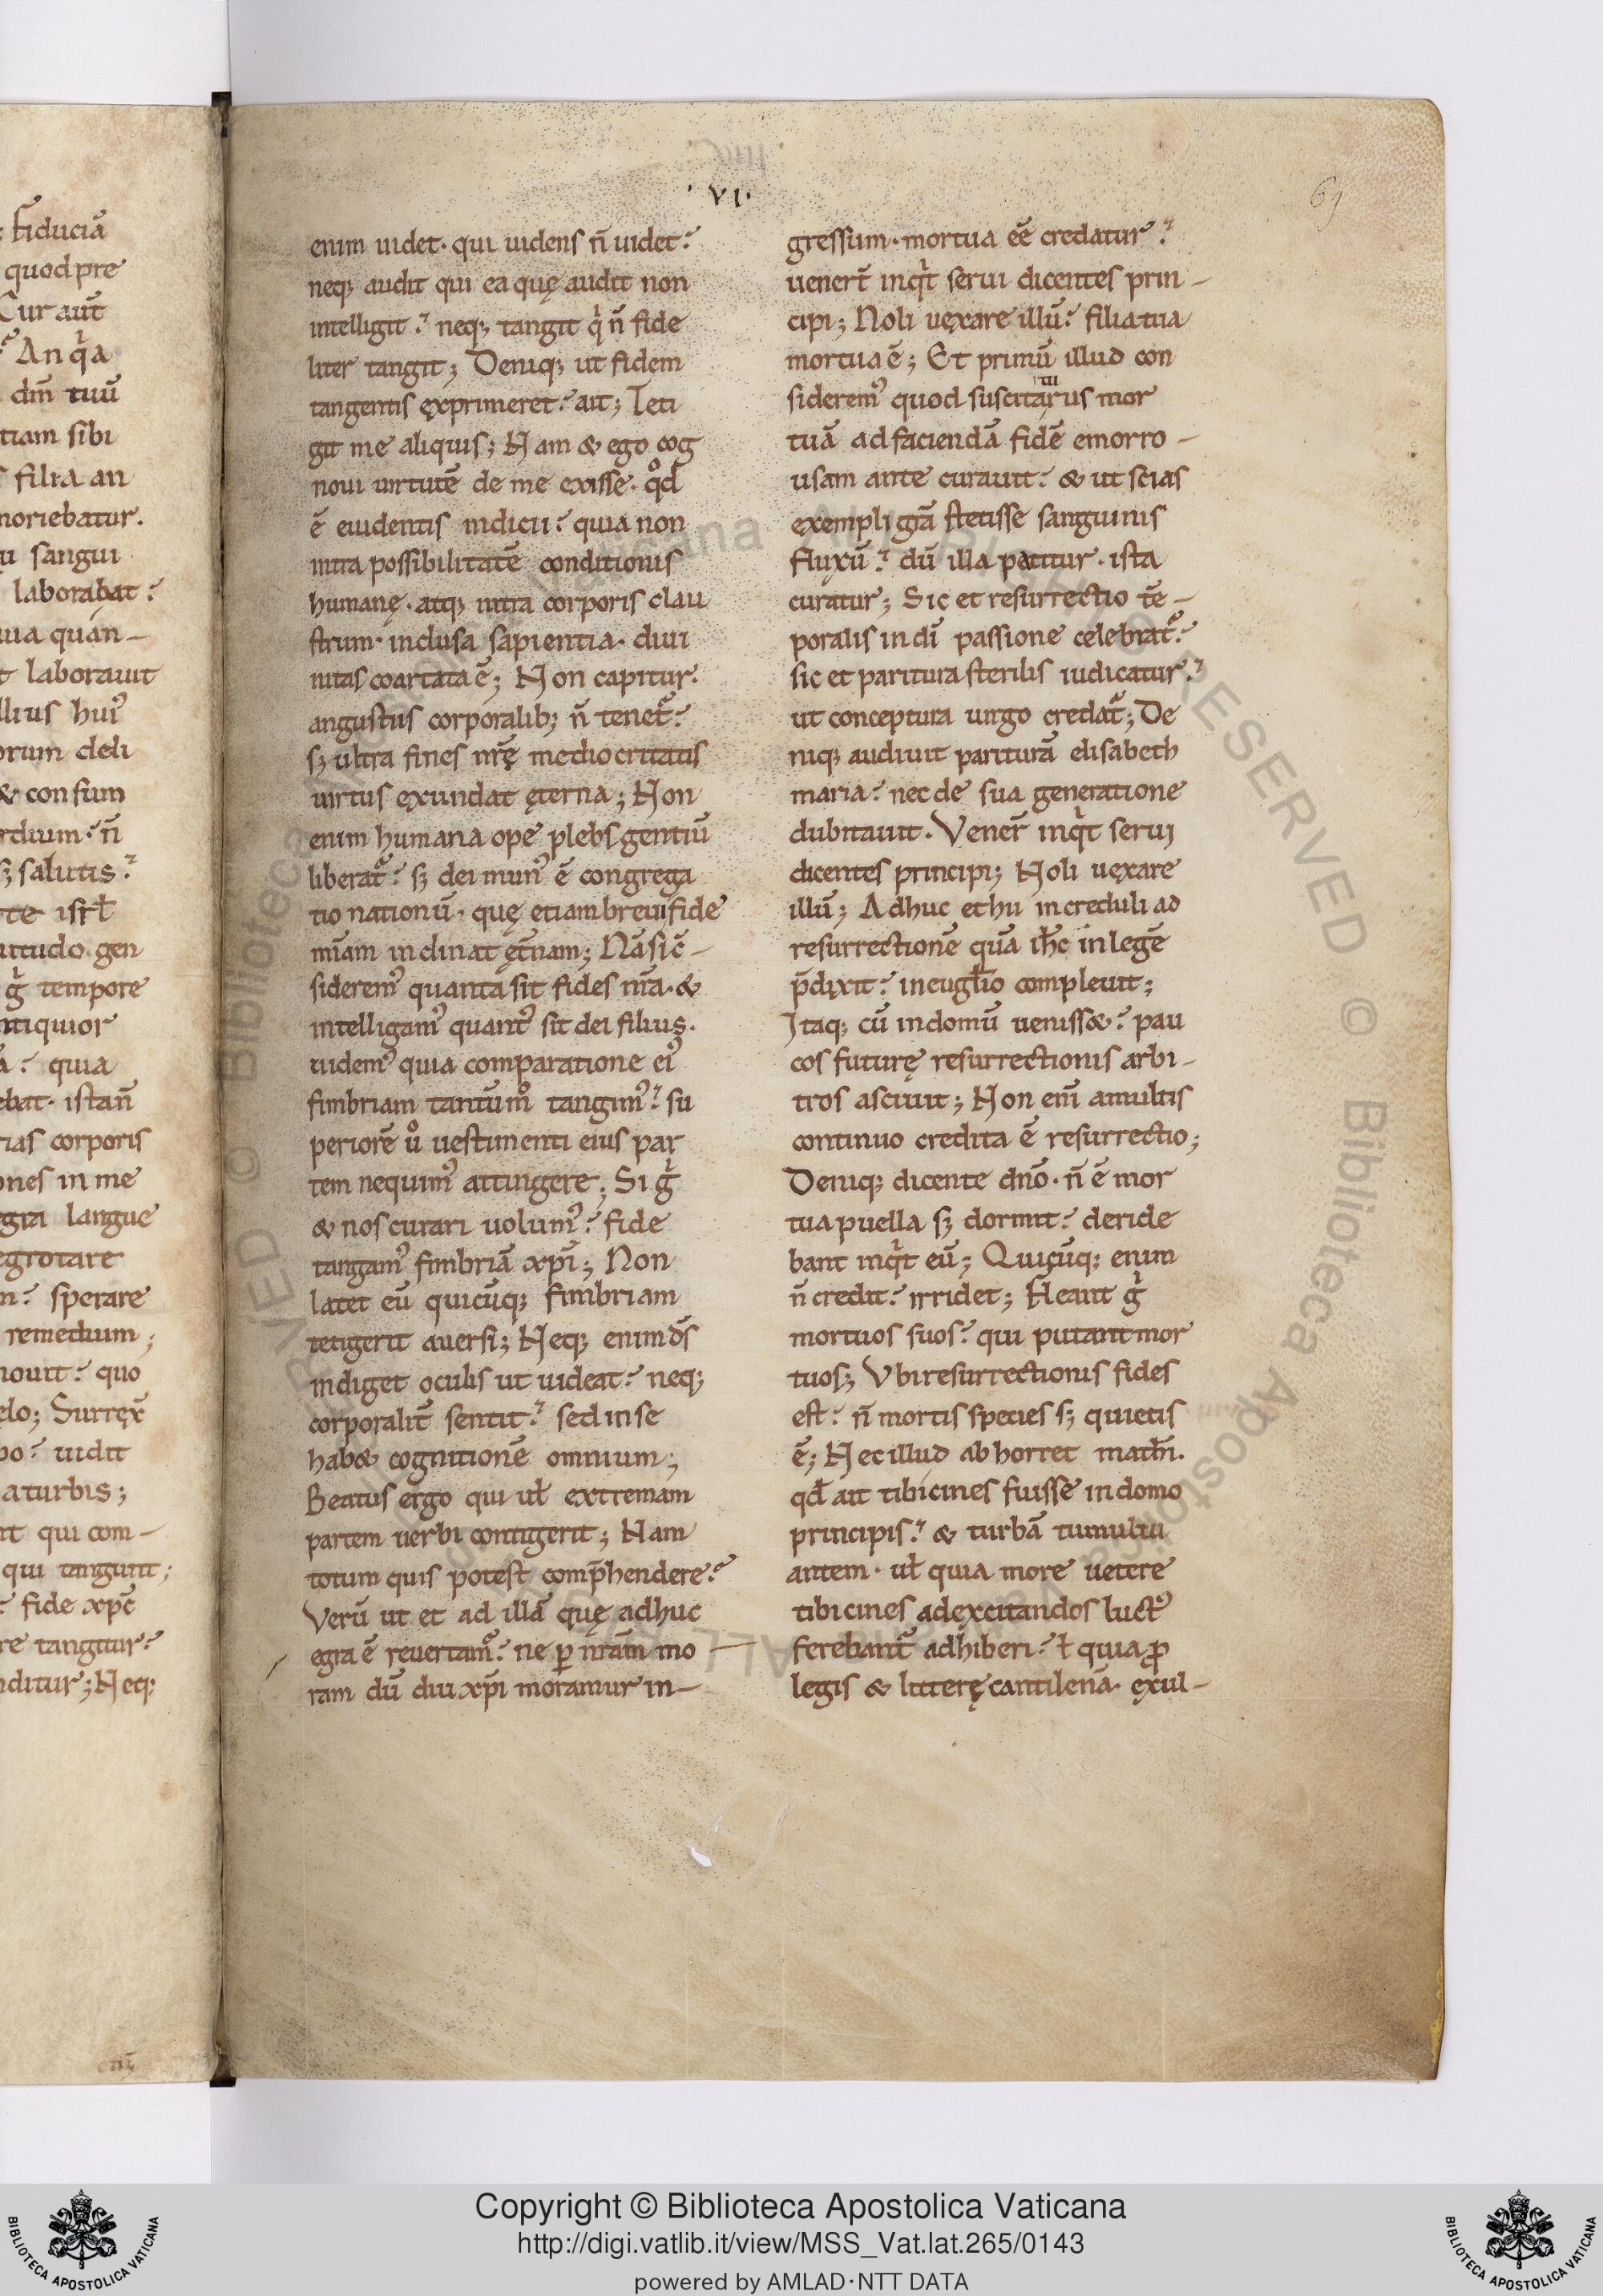 ·VI·
69
enim uidet· qui uidens n̄ uidet?
neq; audit qui ea quę audit non
intelligit? neq; tangit qͥ n̄ fide
liter tangit; Deniq; ut fidem
tangentis exprimeret? ait; Teti
git me aliquis; Nam & ego cog
noui uirtutē de me exisse· qͦd
ē euidentis indicii? quia non
intra possibilitatē conditionis
humanę· atq; intra corporis clau
strum· inclusa sapientia· diui
nitas coartata ē; Non capitur?
angustus corporalib; n̄ tenet᷑?
s; ultra fines nr̄ę mediocritatis
uirtus exundat ęterna; Non
enim humana ope plebs gentiū
liberat᷑? s; dei mun᷒ ē congrega
tio nationū· quę etiam breui fide
mīam inclinat ęt̄nam; Nā sic̄ -
siderem᷒ quanta sit fides nr̄a· &
intelligam᷒ quant᷒ sit dei filius·
uidem᷒ quia comparatione ei᷒
fimbriam tantūmͦ tangim᷒? su
periorē uͦ uestimenti eius par
tem nequim᷒ attingere; Si gͥ
& nos curari uolum᷒? fide
tangam᷒ fimbriā xp̄i; Non
latet eū quicūq; fimbriam
tetigerit auersi; Neq; enim d̄s
indiget oculis ut uideat? neq;
corporalit̄ sentit? sed in se
hab& cognitionē omnium;
Beatus ergo qui ul̵ extremam
partem uerbi contigerit; Nam
totum quis potest comp̄hendere?
Verū ut et ad illā quę adhuc
egra ē reuertam᷒? ne ꝑ nr̄am mo
ram dū diu xp̄i moramur in-
gressum· mortua eē credatur?
uenert̄ inqͥt serui dicentes prin-
cipi; Noli uexare illū? filia tua
mortua ē; Et primū illud con
siderem᷒ quod suscitaturus mor
tuā ad faciendā fidē emorro-
usam ante curauit? & ut scias
exempli grā stetisse sanguinis
fluxū? dū illa petitur· ista
curatur; Sic et resurrectio tē-
poralis in dn̄i passione celebrat᷑?
sic et paritura sterilis iudicatur?
ut conceptura uirgo credat᷑; De
niq; audiuit pariturā elisabeth
maria? nec de sua generatione
dubitauit. Vener̄ inqͥt serui
dicentes principi; Noli uexare
illū; Adhuc et hii increduli ad
resurrectionē quā ih̄c in legē
p̄dixit? in eugl̄io compleuit;
Itaq; cū in domū ueniss&? pau
cos futurę resurrectionis arbi-
tros asciuit; Non enī a multis
continuo credita ē resurrectio;
Deniq; dicente dn̄o· n̄ ē mor
tua puella s; dormit? deride
bant inqͥt eū; Quicūq; enim
n̄ credit? irridet; Fleant gͥ
mortuos suos? qui putant mor
tuos; Vbi resurrectionis fides
est? n̄ mortis species s; quietis
ē; Nec illud abhorret math̄i.
qd̄ ait tibicines fuisse in domo
principis? & turbā tumultu
antem· ul̵ quia more uetere
tibicines ad excitandos luct᷒
ferebant᷑ adhiberi? ł quia ꝓ
legis & litterę cantilenā· exul-
Copyright © Biblioteca Apostolica Vaticana
http://digi.vatlib.it/view/MSS_Vat.lat.265/0143
powered by AMLAD·NTT DATA